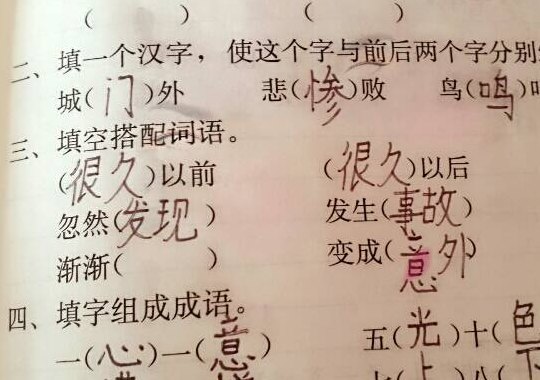 (　　) (　　)
二、填一个汉字，使这个字与前后两个字分别
城(门)外 悲(惨)败 鸟(鸣)
三、填空搭配词语。
(很久)以前 (很久)以后
忽然(发现) 发生(事故)
渐渐(　　) 变成(意外)
四、填字组成成语。
一(心)一(意) 五(光)十(色
七(上)八(下